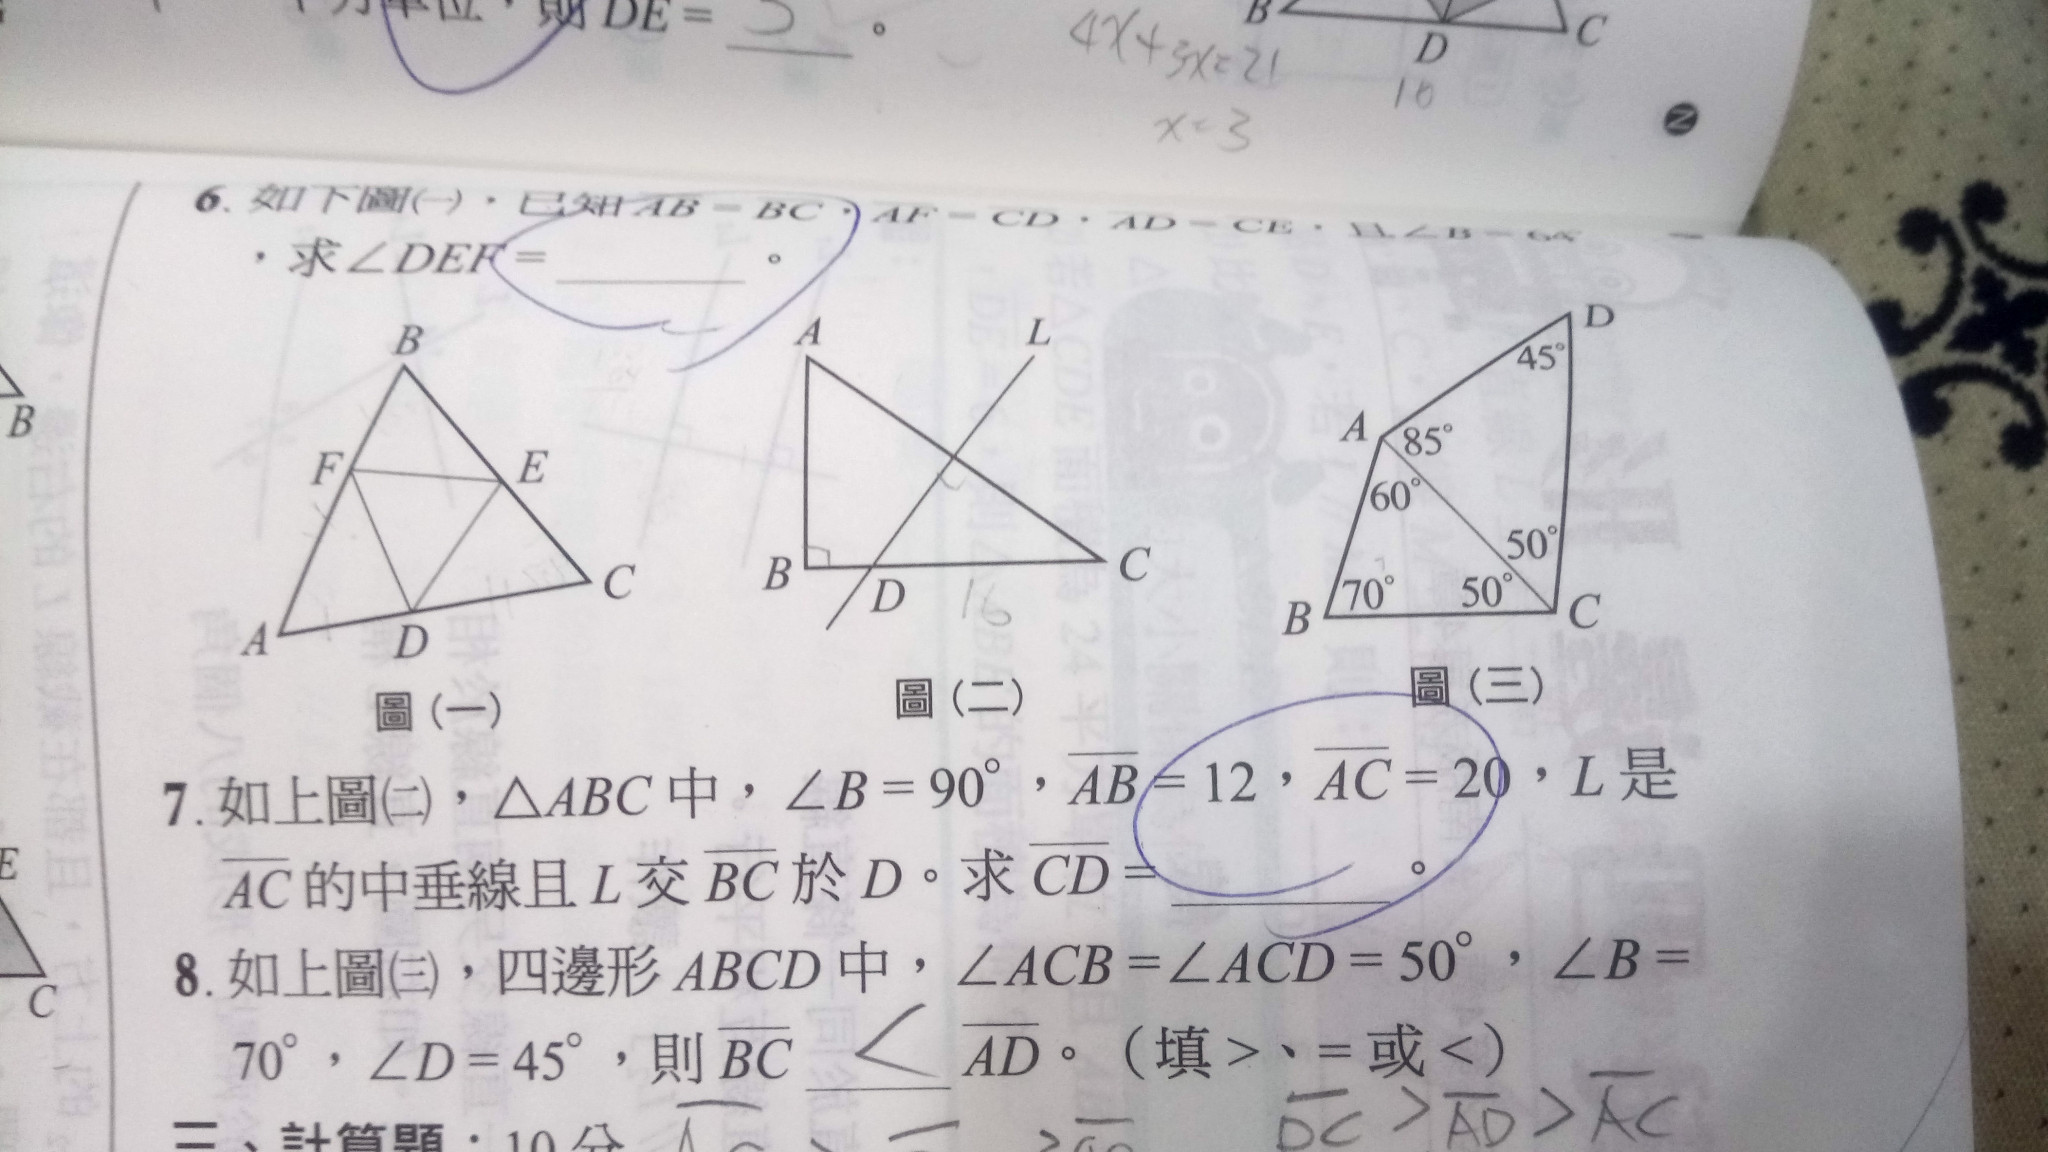 則 DE = 5 。
4x+3x=21
x=3
B
D
C
16
N
6. 如下圖㈠，已知 AB = BC，AF = CD，AD = CE，且∠B = 68°
，求∠DEF = ______ 。
B
F
E
A
D
C
圖 (一)
A
L
B
D
C
16
圖 (二)
D
45°
A
85°
60°
50°
B
70°
50°
C
圖 (三)
B
E
C
7. 如上圖㈡，△ABC 中，∠B = 90°，AB = 12，AC = 20，L 是
AC 的中垂線且 L 交 BC 於 D。求 CD = ______ 。
8. 如上圖㈢，四邊形 ABCD 中，∠ACB = ∠ACD = 50°，∠B =
70°，∠D = 45°，則 BC < AD。（填 >、= 或 <）
DC > AD > AC
三、計算題：10 分